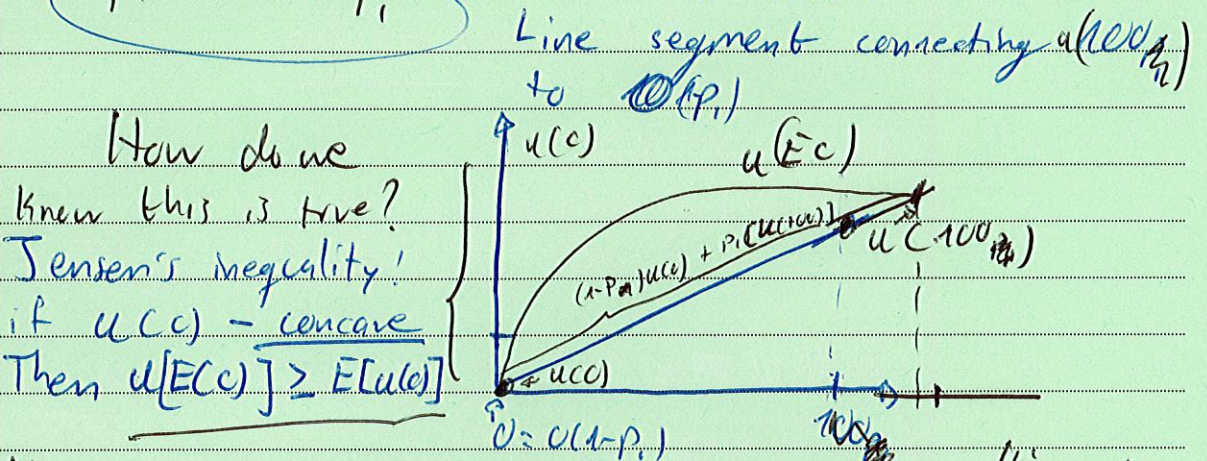 Line segment connecting u(100
to (p₁)
How do we
know this is true?
Jensen's inequality!
if u(c) - concave
Then u[E(c)] ≥ E[u(c)]
u(c)
u(Ec)
(1-p)u(0) + p₁[u(100)]
u(100
u(0)
0 = 0(1-p₁)
100